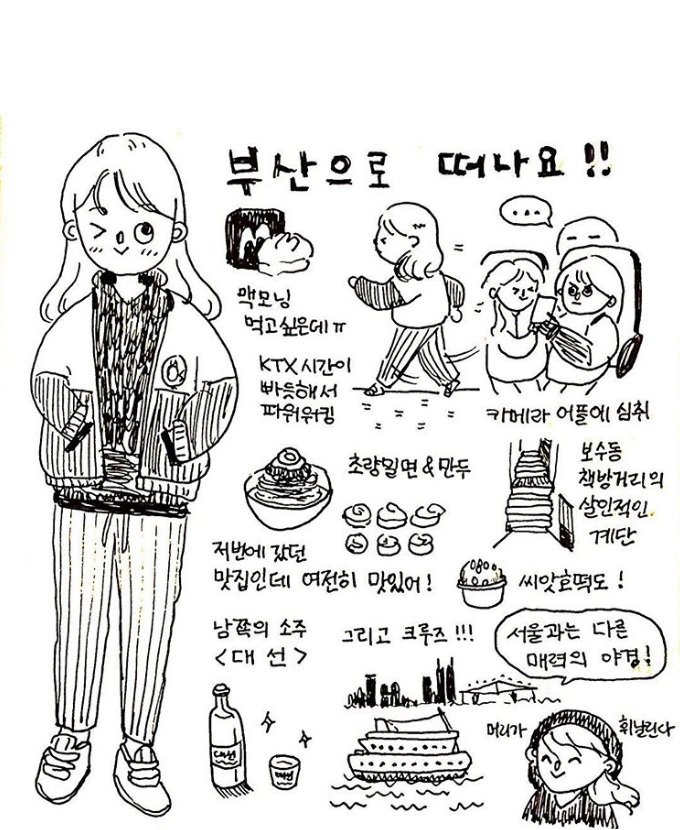 부산으로 떠나요!!
M
...
맥모닝
먹고싶은데ㅠ
KTX시간이
빠듯해서
파워워킹
카메라 어플에 심취
초량밀면&만두
저번에 갔던
맛집인데 여전히 맛있어!
보수동
책방거리의
살인적인
계단
씨앗호떡도!
남쪽의 소주
<대선>
대선
대선
그리고 크루즈!!!
서울과는 다른
매력의 야경!
머리가 휘날린다